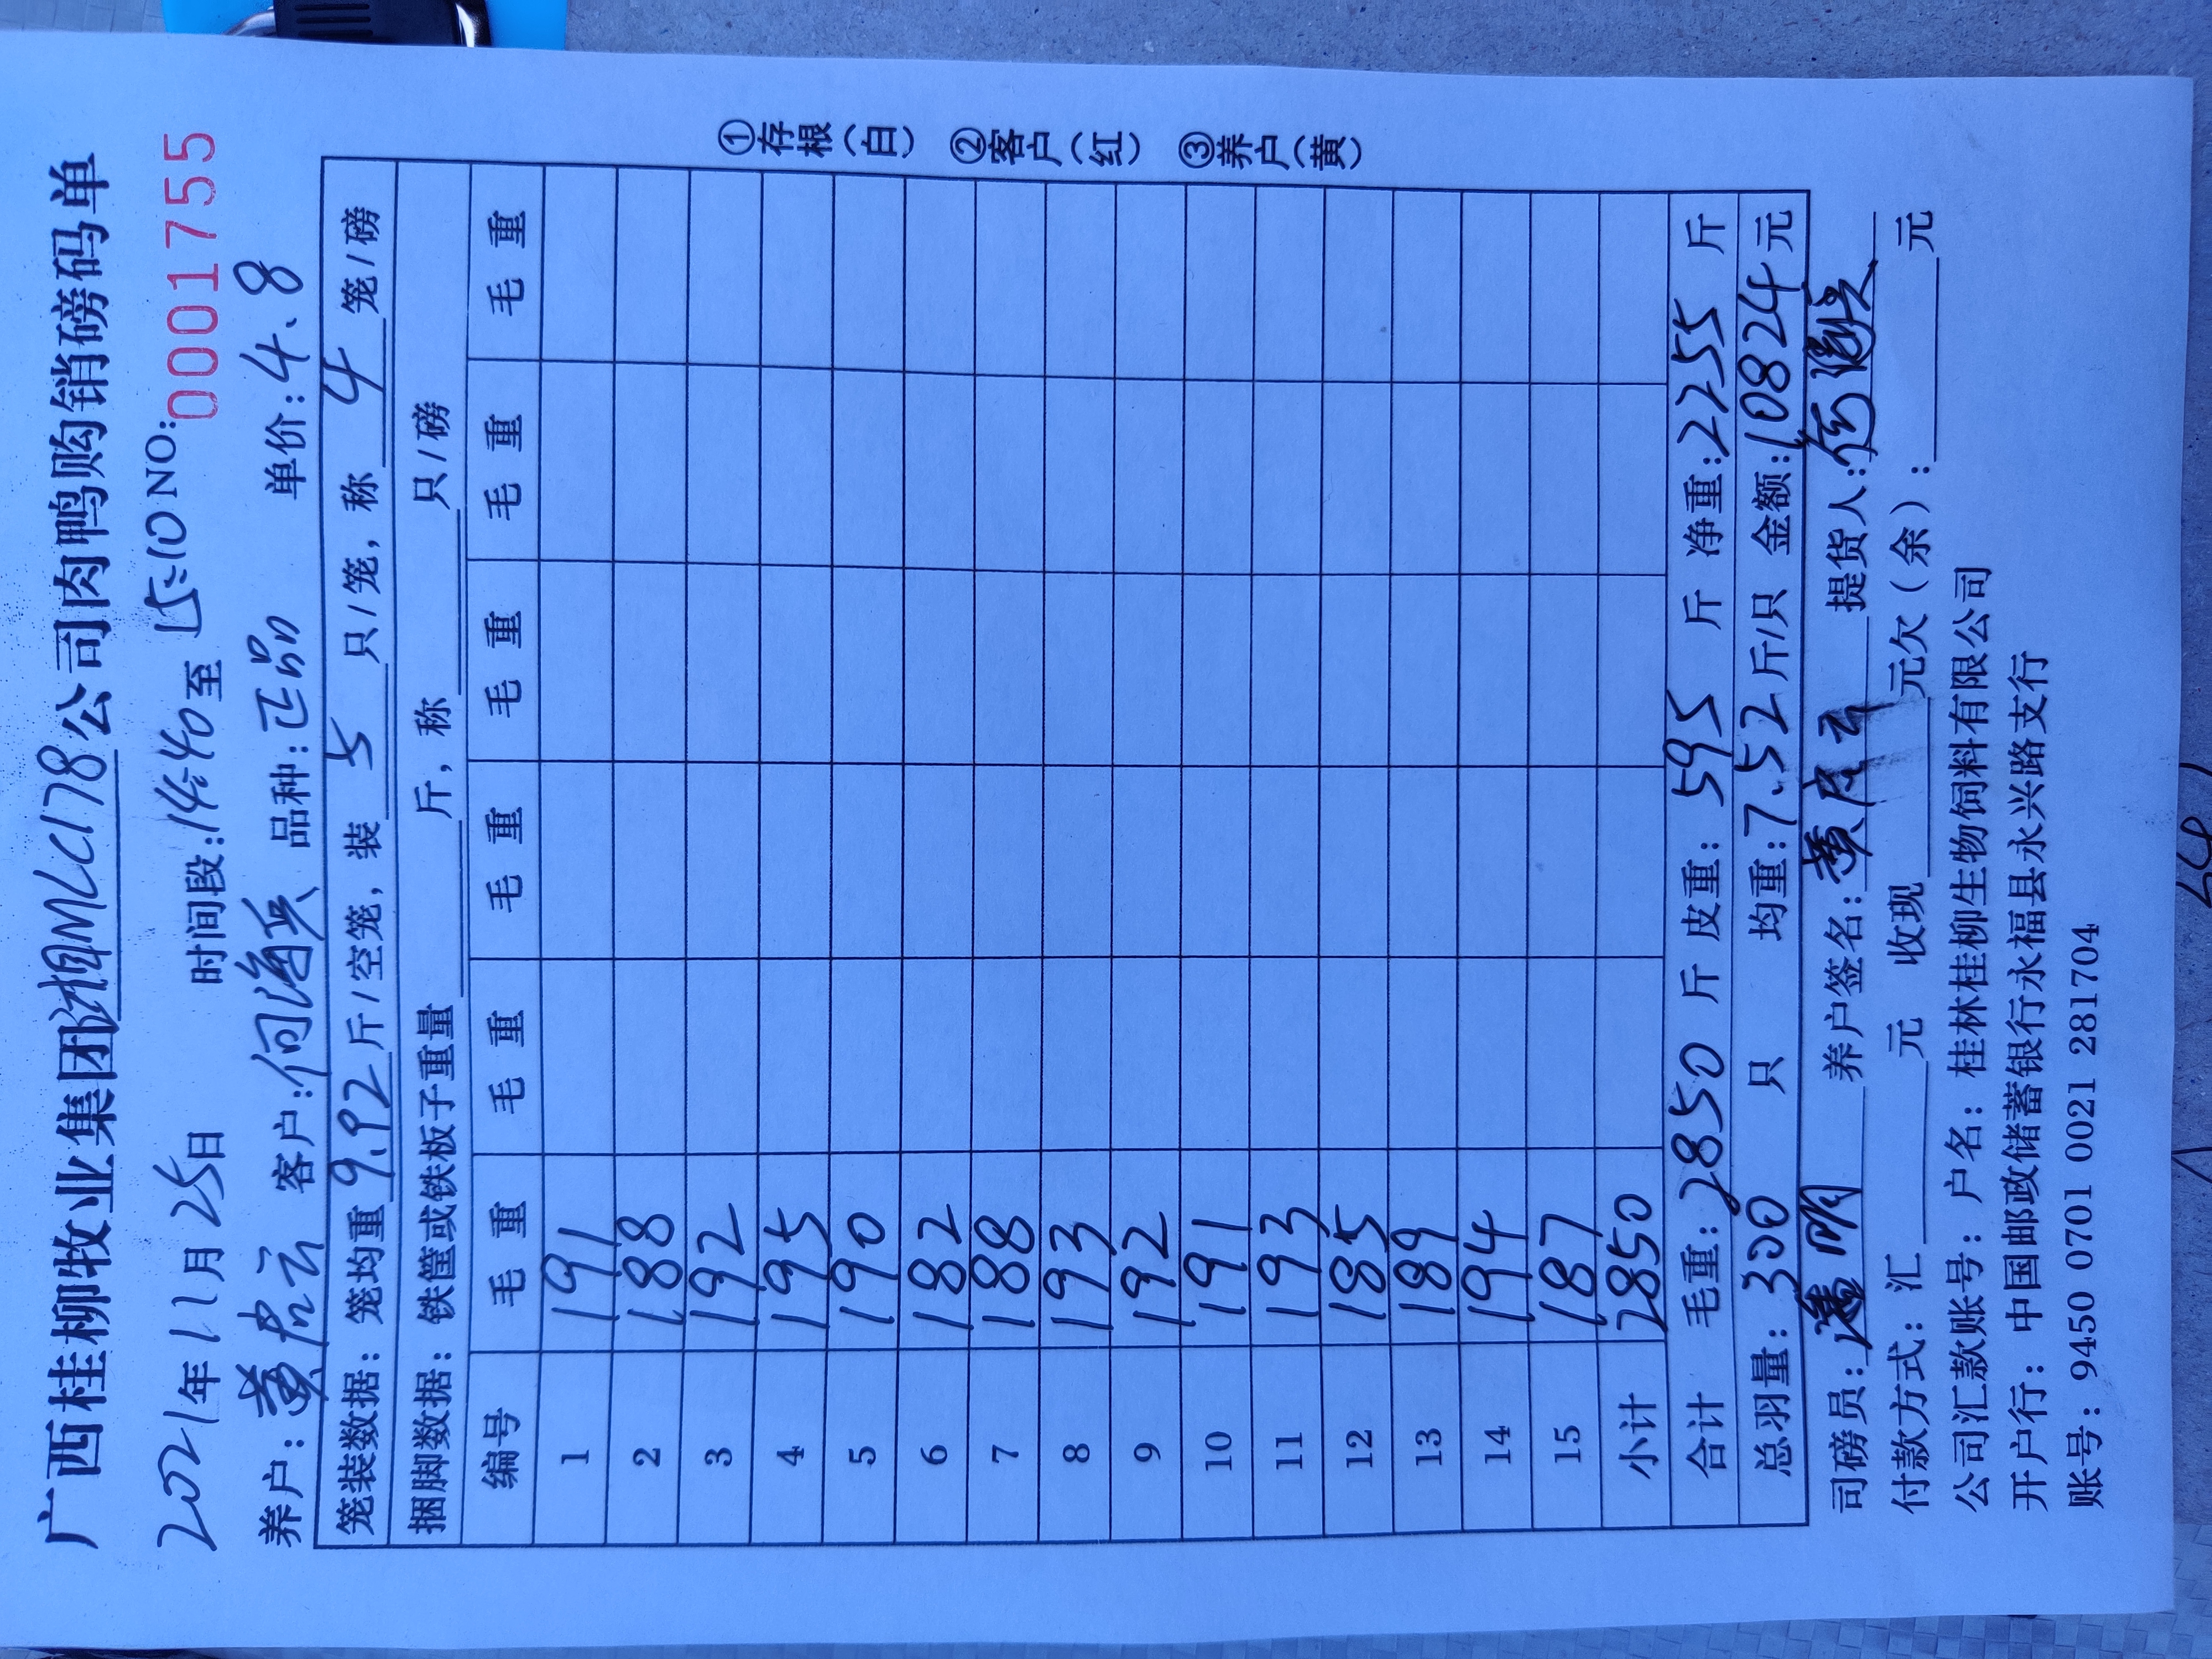 广西桂柳牧业集团湘BMLC178公司肉鸭购销磅码单
2021年11月25日 时间段:14:40至15:10 NO: 0001755
养户: 黄彦云 客户:何海兵 品种:正品 单价:4.8
笼装数据: 笼均重 9.92 斤/空笼, 装 5 只/笼, 称 4 笼/磅
捆脚数据: 铁筐或铁板子重量 斤, 称 只/磅
编号 毛重 毛重 毛重 毛重 毛重 毛重
1 191
2 188
3 192
4 195
5 190
6 182
7 188
8 193
9 192
10 191
11 193
12 185
13 189
14 194
15 187
小计 2850
合计 毛重: 2850 斤 皮重: 595 斤 净重: 2255 斤
总羽量: 300 只 均重: 7.52 斤/只 金额: 10824元
司磅员: 明 养户签名: 黄彦云 提货人:
付款方式: 汇 元 收现 元欠(余): 元
公司汇款账号: 户名: 桂林桂柳生物饲料有限公司
开户行: 中国邮政储蓄银行永福县永兴路支行
账号: 9450 0701 0021 281704
①存根(白) ②客户(红) ③养户(黄)